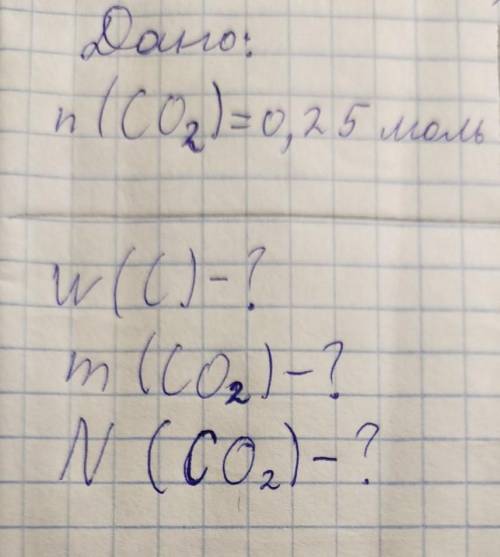 Дано:
n(CO₂)=0,25 моль
w(C)-?
m(CO₂)-?
N(CO₂)-?